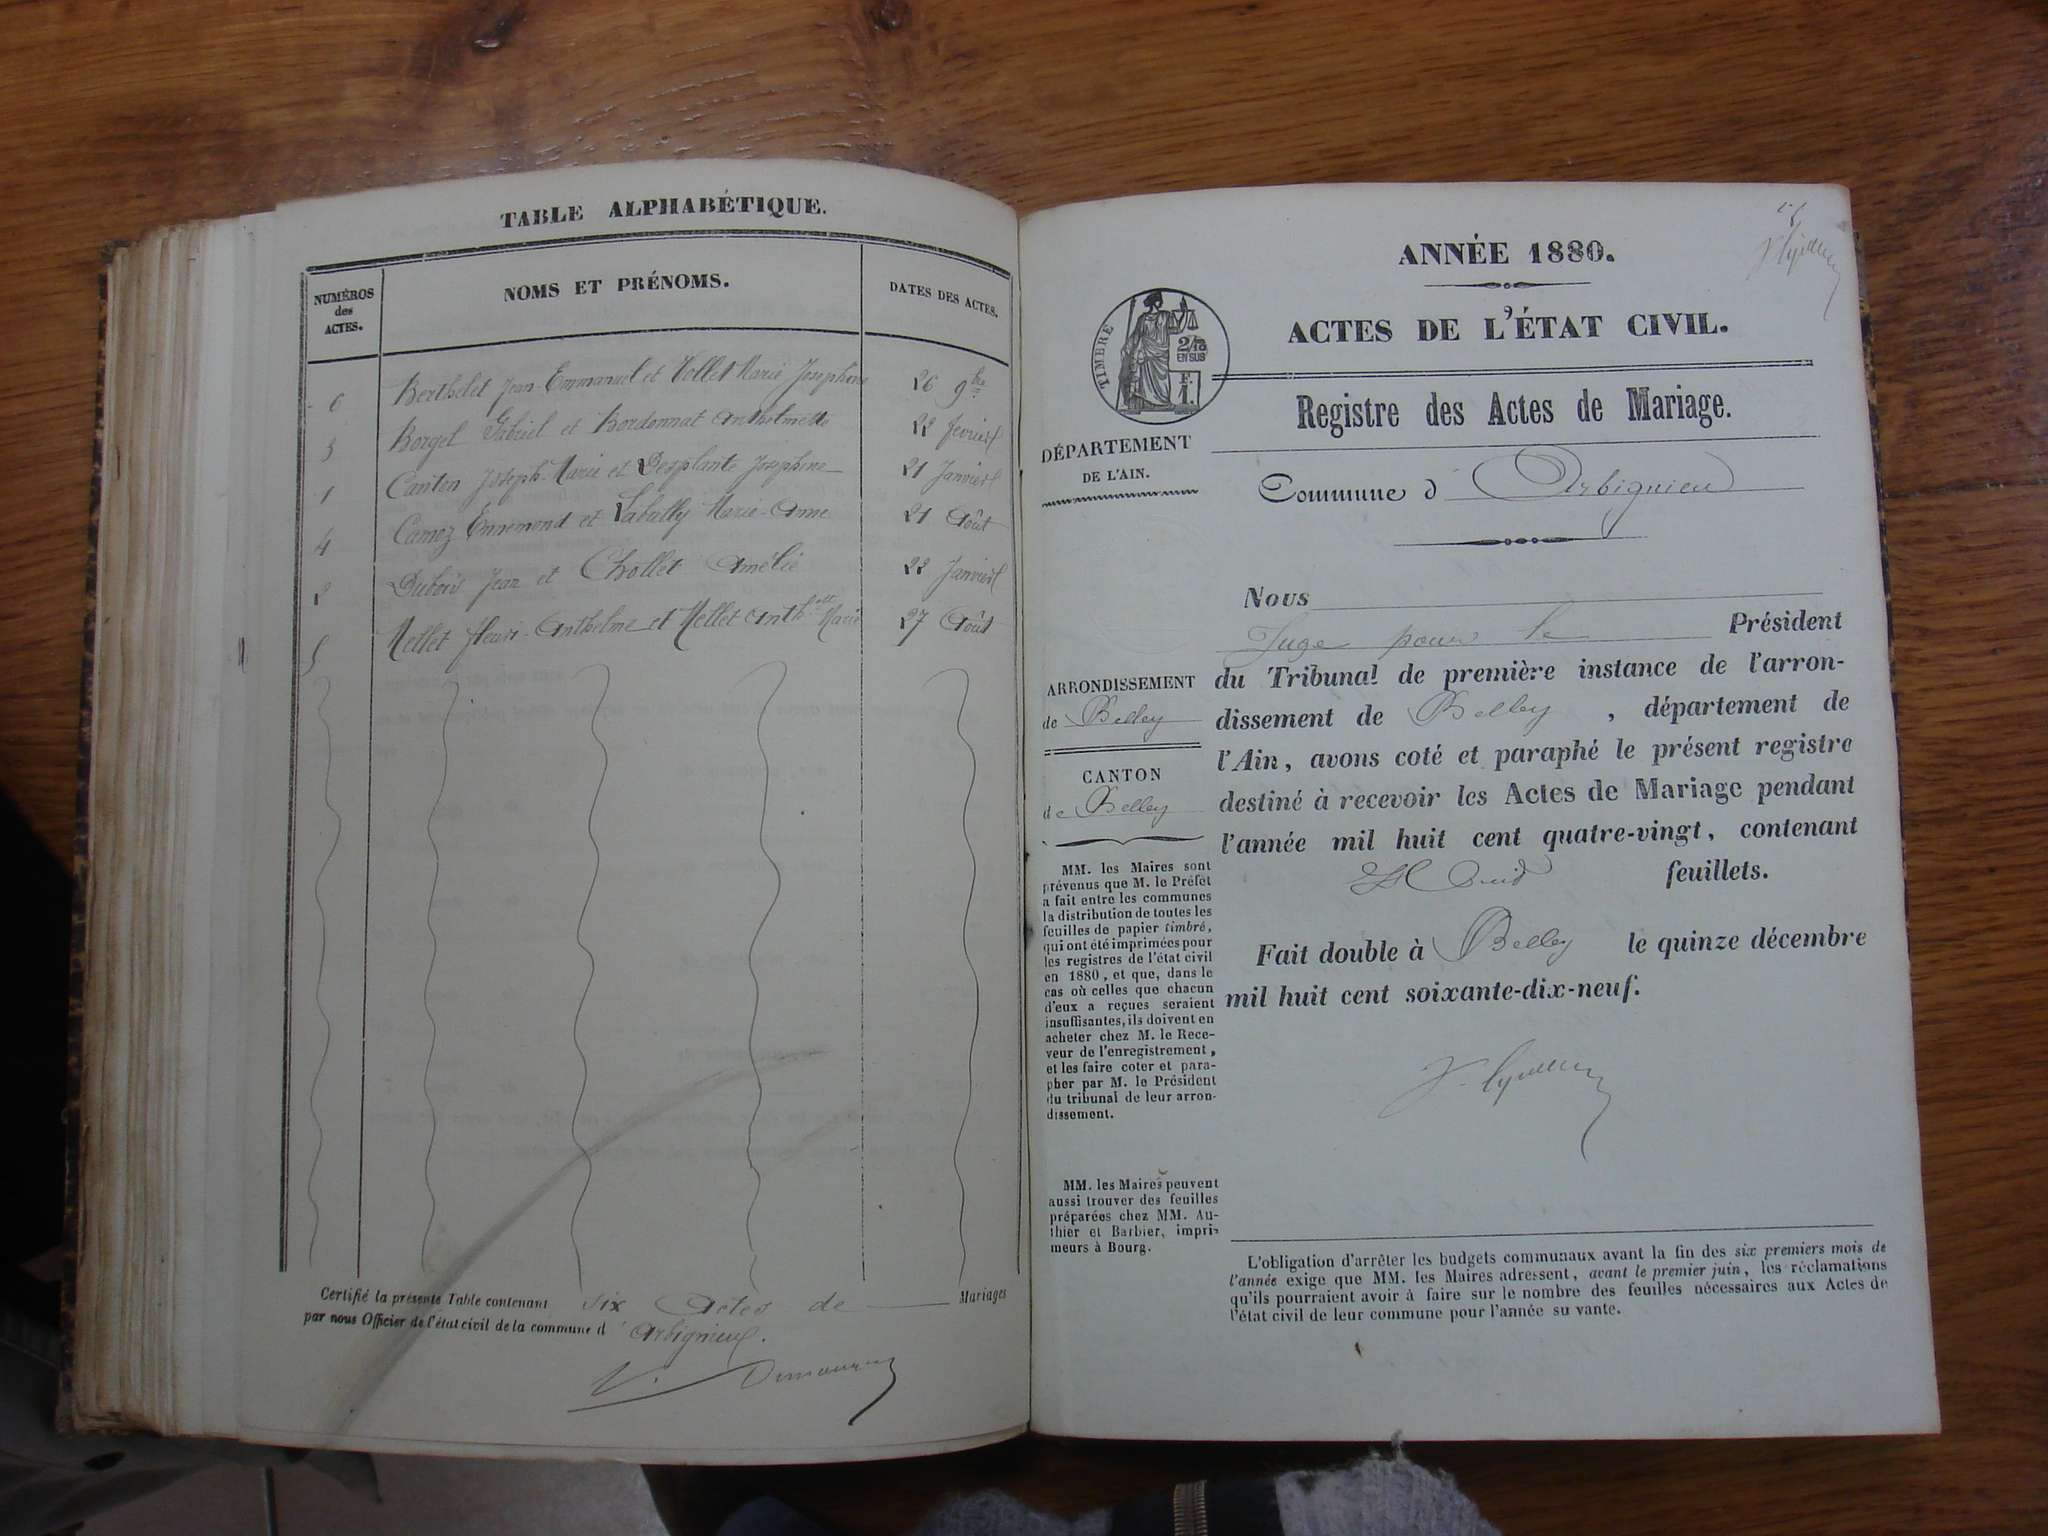 TABLE ALPHABÉTIQUE.
NUMÉROS
des
ACTES.
NOMS ET PRÉNOMS.
DATES DES ACTES.
6 Berthelet Jean-Emmanuel et Mollet Marie Joséphine 26 9bre
3 Borgel Gabriel et Bordonnat Anthelmette 22 février
1 Canton Joseph-Marie et Desplante Josephine 21 Janvier
4 Carroz Ennemond et Labully Marie-Anne 21 Août
2 Dubois Jean et Chollet Amélie 22 Janvier
5 Mellet Fleuri-Anthelme et Mellet Anthette Marie 27 Août
Certifié la présente Table contenant six Actes de Mariages
par nous Officier de l'état civil de la commune d'Arbignieu.
ANNÉE 1880.
ACTES DE L'ÉTAT CIVIL.
TIMBRE
2/10
EN SUS
F.
1.
Registre des Actes de Mariage.
DÉPARTEMENT
DE L'AIN.
Commune d'Arbignieu
Nous
Juge pour le Président
du Tribunal de première instance de l'arron-
dissement de Belley, département de
l'Ain, avons coté et paraphé le présent registre
destiné à recevoir les Actes de Mariage pendant
l'année mil huit cent quatre-vingt, contenant
feuillets.
Fait double à Belley le quinze décembre
mil huit cent soixante-dix-neuf.
ARRONDISSEMENT
de Belley
CANTON
de Belley
MM. les Maires sont
prévenus que M. le Préfet
a fait entre les communes
la distribution de toutes les
feuilles de papier timbré,
qui ont été imprimées pour
les registres de l'état civil
en 1880, et que, dans le
cas où celles que chacun
d'eux a reçues seraient
insuffisantes, ils doivent en
acheter chez M. le Rece-
veur de l'enregistrement,
et les faire coter et para-
pher par M. le Président
du tribunal de leur arron-
dissement.
MM. les Maires peuvent
aussi trouver des feuilles
préparées chez MM. Au-
thier et Barbier, impri-
meurs à Bourg.
L'obligation d'arrêter les budgets communaux avant la fin des six premiers mois de
l'année exige que MM. les Maires adressent, avant le premier juin, les réclamations
qu'ils pourraient avoir à faire sur le nombre des feuilles nécessaires aux Actes de
l'état civil de leur commune pour l'année su vante.